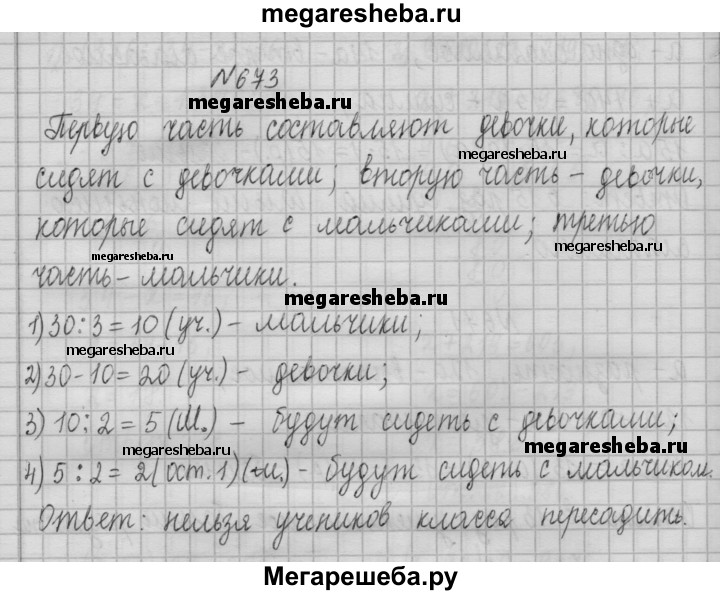 megaresheba.ru
№673
megaresheba.ru
Первую часть составляют девочки, которые
megaresheba.ru
сидят с девочками; вторую часть – девочки,
которые сидят с мальчиками; третью
megaresheba.ru
megaresheba.ru
часть – мальчики.
megaresheba.ru
1) 30:3=10 (уч.) – мальчики;
megaresheba.ru
2) 30-10=20 (уч.) – девочки;
3) 10:2=5 (М.) – будут сидеть с девочками;
megaresheba.ru
megaresheba.ru
4) 5:2=2(ост.1)(м.) – будут сидеть с мальчиком.
Ответ: нельзя учеников класса пересадить.
megaresheba.ru
Мегарешеба.ру